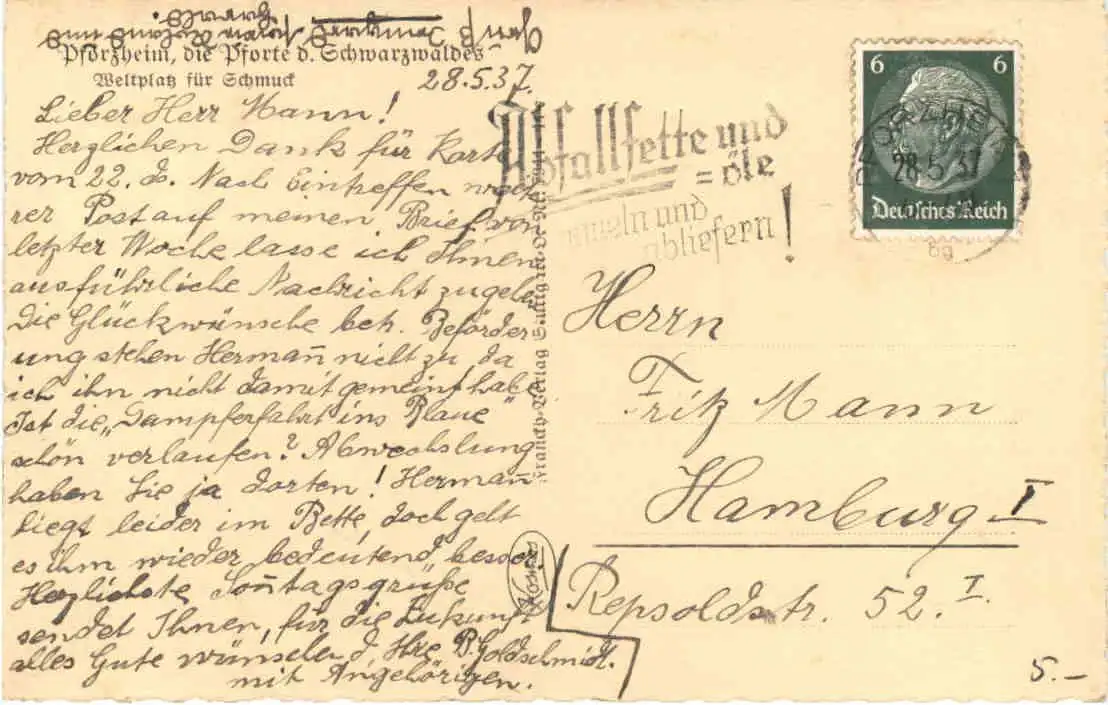 Pforzheim, die Pforte d. Schwarzwaldes
Weltplatz für Schmuck
28.5.37.
Lieber Herr Mann!
Herzlichen Dank für Karte
vom 22. ds. Nach Eintreffen weite-
rer Post auf meinen Brief von
letzter Woche lasse ich Ihnen
ausführliche Nachricht zugehen
Die Glückwünsche betr. Beförder
ung stehen Hermann nicht zu, da
ich ihn nicht damit gemeint habe.
Ist die „Dampferfahrt ins Blaue"
schön verlaufen? Abwechslung
haben Sie ja dorten! Hermann
liegt leider im Bette, doch geht
es ihm wieder bedeutend besser.
Herzlichste Sonntagsgrüße
sendet Ihnen, für die Zukunft
alles Gute wünschend Ihre B. Goldschmidt.
mit Angehörigen.
Abfallfette und
=öle
sammeln und
abliefern!
6 6
PFORZHEIM
28.5.37
Deutsches Reich
Franckh-Verlag Stuttgart
Kosmos
Herrn
Fritz Mann
Hamburg I
Repsoldstr. 52. I.
5.-